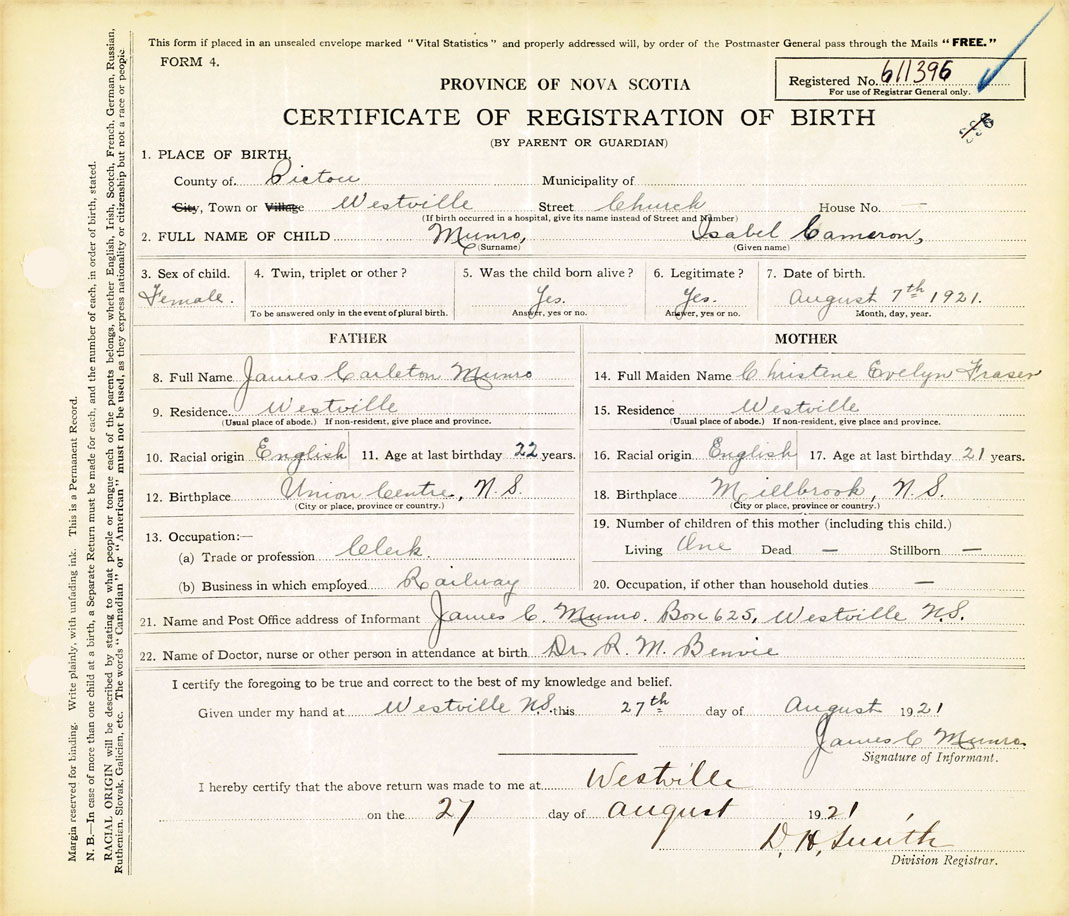 This form if placed in an unsealed envelope marked "Vital Statistics" and properly addressed will, by order of the Postmaster General pass through the Mails "FREE."
FORM 4.
PROVINCE OF NOVA SCOTIA
Registered No. 611396
For use of Registrar General only.
CERTIFICATE OF REGISTRATION OF BIRTH
(BY PARENT OR GUARDIAN)
1. PLACE OF BIRTH,
County of. Pictou Municipality of
City, Town or Village Westville Street Church House No. —
(If birth occurred in a hospital, give its name instead of Street and Number)
2. FULL NAME OF CHILD Munro, Isabel Cameron,
(Surname) (Given name)
3. Sex of child. 4. Twin, triplet or other? 5. Was the child born alive? 6. Legitimate? 7. Date of birth.
Female. Yes. Yes. August 7th 1921.
To be answered only in the event of plural birth. Answer, yes or no. Answer, yes or no. Month, day, year.
FATHER
8. Full Name James Carleton Munro
9. Residence. Westville
(Usual place of abode.) If non-resident, give place and province.
10. Racial origin English 11. Age at last birthday 22 years.
12. Birthplace Union Centre, N.S.
(City or place, province or country.)
13. Occupation:—
(a) Trade or profession Clerk.
(b) Business in which employed Railway
MOTHER
14. Full Maiden Name Christene Evelyn Fraser
15. Residence Westville
(Usual place of abode.) If non-resident, give place and province.
16. Racial origin English 17. Age at last birthday 21 years.
18. Birthplace Millbrook, N.S.
(City or place, province or country.)
19. Number of children of this mother (including this child.)
Living One Dead — Stillborn —
20. Occupation, if other than household duties —
21. Name and Post Office address of Informant James C. Munro. Box 625, Westville N.S.
22. Name of Doctor, nurse or other person in attendance at birth Dr. R. M. Benvie
I certify the foregoing to be true and correct to the best of my knowledge and belief.
Given under my hand at Westville N.S. this 27th day of August 1921
James C Munro
Signature of Informant.
I hereby certify that the above return was made to me at Westville
on the 27 day of August 1921
D. H. Smith
Division Registrar.
Margin reserved for binding. Write plainly, with unfading ink. This is a Permanent Record.
N. B.—In case of more than one child at a birth, a Separate Return must be made for each, and the number of each, in order of birth, stated.
RACIAL ORIGIN will be described by stating to what people or tongue each of the parents belongs, whether English, Irish, Scotch, French, German, Russian,
Ruthenian, Slovak, Galician, etc. The words "Canadian" or "American" must not be used, as they express nationality or citizenship but not a race or people